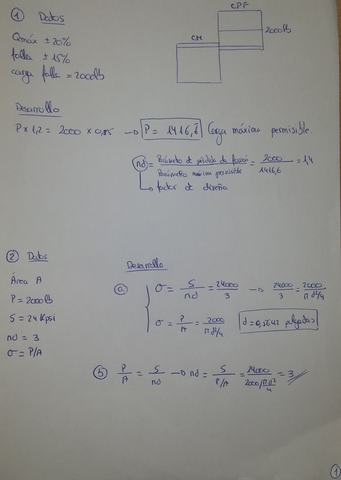 ① Datos
Qmáx ± 20%
falla ± 15%
carga falla = 2000lb
CPF
CM
2000lb
Desarrollo
P x 1,2 = 2000 x 0,85 → P = 1416,6̂ Carga máxima permisible.
nd = Parámetro de pérdida de función / Parámetro máximo permisible = 2000 / 1416,6 = 1,4
→ factor de diseño
② Datos
Área A
P = 2000lb
S = 24 Kpsi
nd = 3
σ = P/A
Desarrollo
ⓐ σ = S / nd = 24000 / 3 → 24000 / 3 = 2000 / π d²/4
σ = P / A = 2000 / π d²/4 d = 0,5642 pulgadas
ⓑ P / A = S / nd → nd = S / P/A = 24000 / 2000/(π d²/4) = 3
1